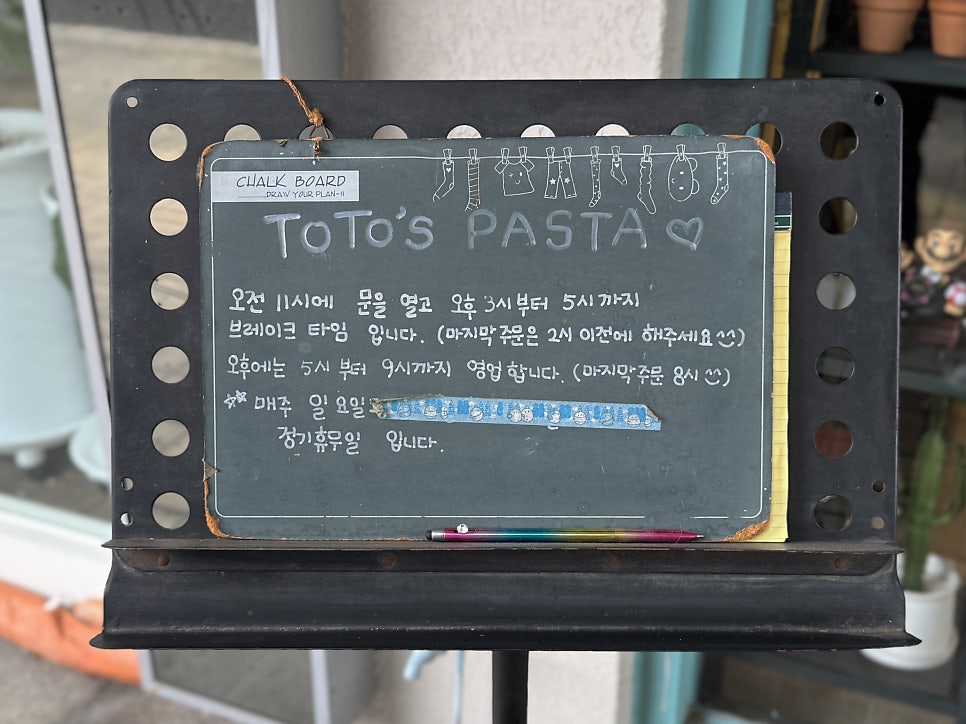 CHALK BOARD
DRAW YOUR PLAN-!!
TOTO'S PASTA♡
오전 11시에 문을 열고 오후 3시부터 5시까지
브레이크 타임 입니다. (마지막주문은 2시 이전에 해주세요☺)
오후에는 5시 부터 9시까지 영업합니다. (마지막주문 8시☺)
☆☆ 매주 일요일
정기휴무일 입니다.